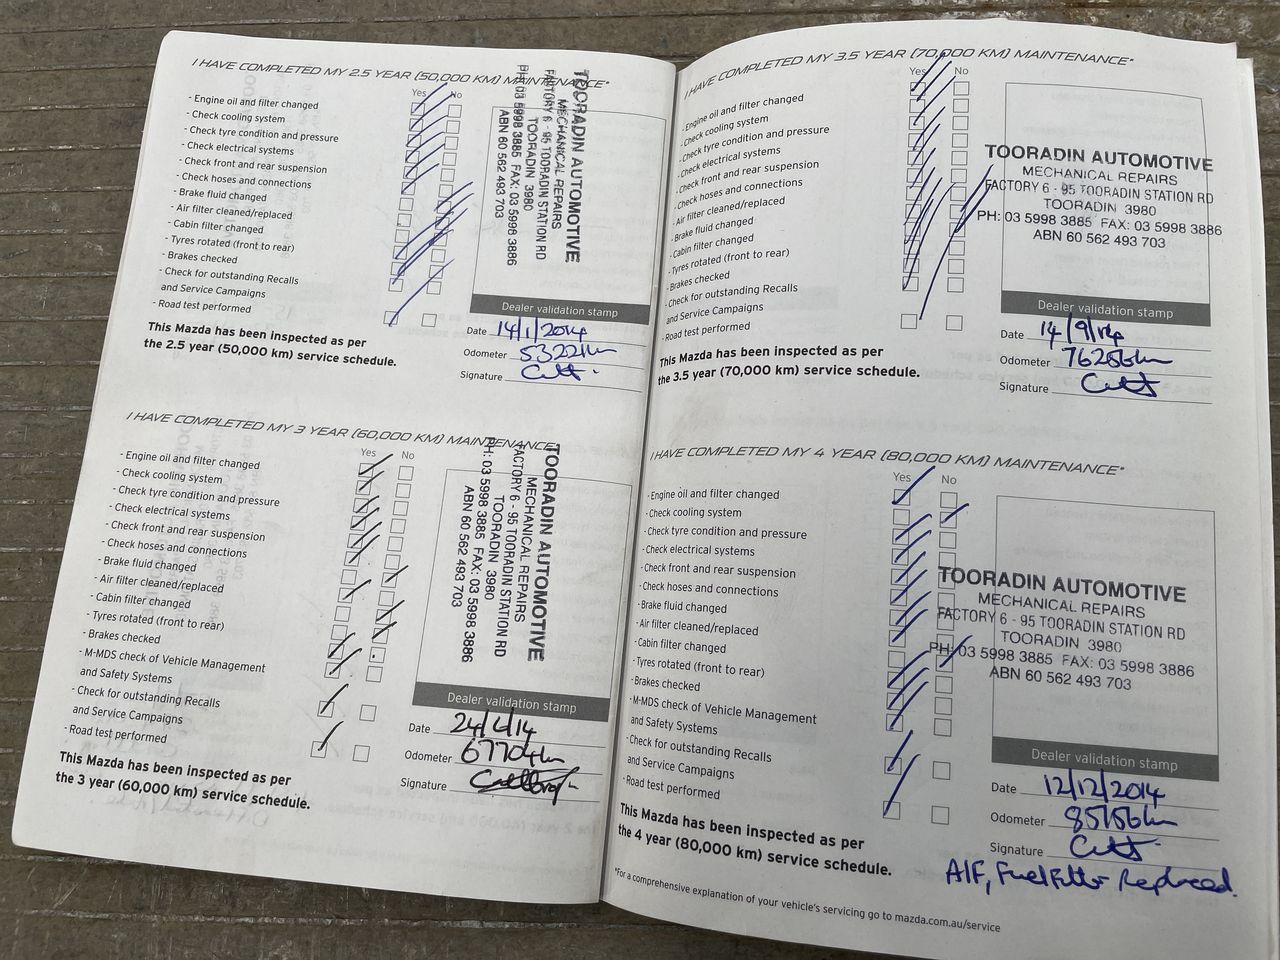 I HAVE COMPLETED MY 2.5 YEAR (50,000 KM) MAINTENANCE*
Yes No
- Engine oil and filter changed
- Check cooling system
- Check tyre condition and pressure
- Check electrical systems
- Check front and rear suspension
- Check hoses and connections
- Brake fluid changed
- Air filter cleaned/replaced
- Cabin filter changed
- Tyres rotated (front to rear)
- Brakes checked
- Check for outstanding Recalls
and Service Campaigns
- Road test performed
This Mazda has been inspected as per
the 2.5 year (50,000 km) service schedule.
TOORADIN AUTOMOTIVE
MECHANICAL REPAIRS
FACTORY 6 - 95 TOORADIN STATION RD
TOORADIN 3980
PH: 03 5998 3885 FAX: 03 5998 3886
ABN 60 562 493 703
Dealer validation stamp
Date 14/1/2014
Odometer 53221km
Signature
I HAVE COMPLETED MY 3 YEAR (60,000 KM) MAINTENANCE*
Yes No
- Engine oil and filter changed
- Check cooling system
- Check tyre condition and pressure
- Check electrical systems
- Check front and rear suspension
- Check hoses and connections
- Brake fluid changed
- Air filter cleaned/replaced
- Cabin filter changed
- Tyres rotated (front to rear)
- Brakes checked
- M-MDS check of Vehicle Management
and Safety Systems
- Check for outstanding Recalls
and Service Campaigns
- Road test performed
This Mazda has been inspected as per
the 3 year (60,000 km) service schedule.
TOORADIN AUTOMOTIVE
MECHANICAL REPAIRS
FACTORY 6 - 95 TOORADIN STATION RD
TOORADIN 3980
PH: 03 5998 3885 FAX: 03 5998 3886
ABN 60 562 493 703
Dealer validation stamp
Date
Odometer 67704km
Signature
I HAVE COMPLETED MY 3.5 YEAR (70,000 KM) MAINTENANCE*
Yes No
- Engine oil and filter changed
- Check cooling system
- Check tyre condition and pressure
- Check electrical systems
- Check front and rear suspension
- Check hoses and connections
- Air filter cleaned/replaced
- Brake fluid changed
- Cabin filter changed
- Tyres rotated (front to rear)
- Brakes checked
- Check for outstanding Recalls
and Service Campaigns
- Road test performed
This Mazda has been inspected as per
the 3.5 year (70,000 km) service schedule.
TOORADIN AUTOMOTIVE
MECHANICAL REPAIRS
FACTORY 6 - 95 TOORADIN STATION RD
TOORADIN 3980
PH: 03 5998 3885 FAX: 03 5998 3886
ABN 60 562 493 703
Dealer validation stamp
Date 14/9/14
Odometer 76256km
Signature
I HAVE COMPLETED MY 4 YEAR (80,000 KM) MAINTENANCE*
Yes No
- Engine oil and filter changed
- Check cooling system
- Check tyre condition and pressure
- Check electrical systems
- Check front and rear suspension
- Check hoses and connections
- Brake fluid changed
- Air filter cleaned/replaced
- Cabin filter changed
- Tyres rotated (front to rear)
- Brakes checked
- M-MDS check of Vehicle Management
and Safety Systems
- Check for outstanding Recalls
and Service Campaigns
- Road test performed
This Mazda has been inspected as per
the 4 year (80,000 km) service schedule.
TOORADIN AUTOMOTIVE
MECHANICAL REPAIRS
FACTORY 6 - 95 TOORADIN STATION RD
TOORADIN 3980
PH: 03 5998 3885 FAX: 03 5998 3886
ABN 60 562 493 703
Dealer validation stamp
Date 12/12/2014
Odometer 85156km
Signature
A/F, Fuel Filter Replaced.
*For a comprehensive explanation of your vehicle's servicing go to mazda.com.au/service